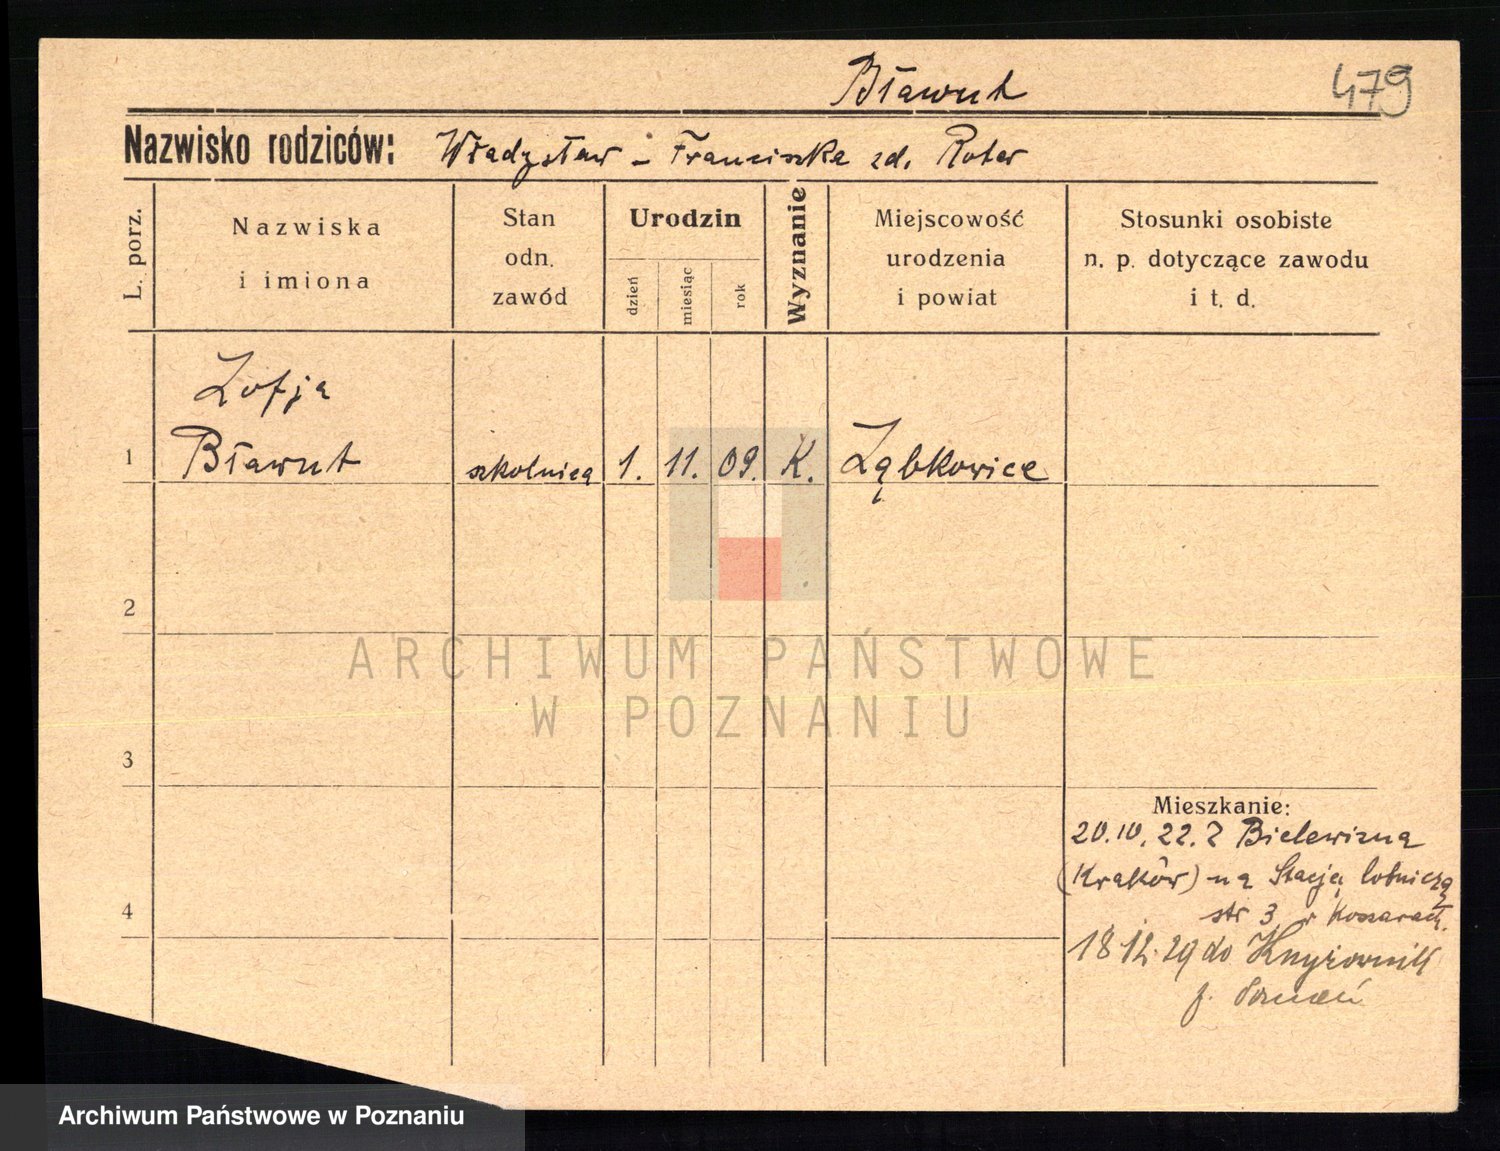 Bławut
479
Nazwisko rodziców: Władysław – Franciszka zd. Roter
L. porz.
Nazwiska i imiona
Stan odn. zawód
Urodzin
dzień
miesiąc
rok
Wyznanie
Miejscowość urodzenia i powiat
Stosunki osobiste n. p. dotyczące zawodu i t. d.
Zofja
1 Bławut szkolnica 1. 11. 09. K. Ząbkowice
2
3
4
Mieszkanie:
20.10.22. Z Bielewizna
(Kraków) na Stację lotniczą
str 3 w Koszarach.
18 12. 29 do
p. Poznań
ARCHIWUM PAŃSTWOWE
W POZNANIU
Archiwum Państwowe w Poznaniu